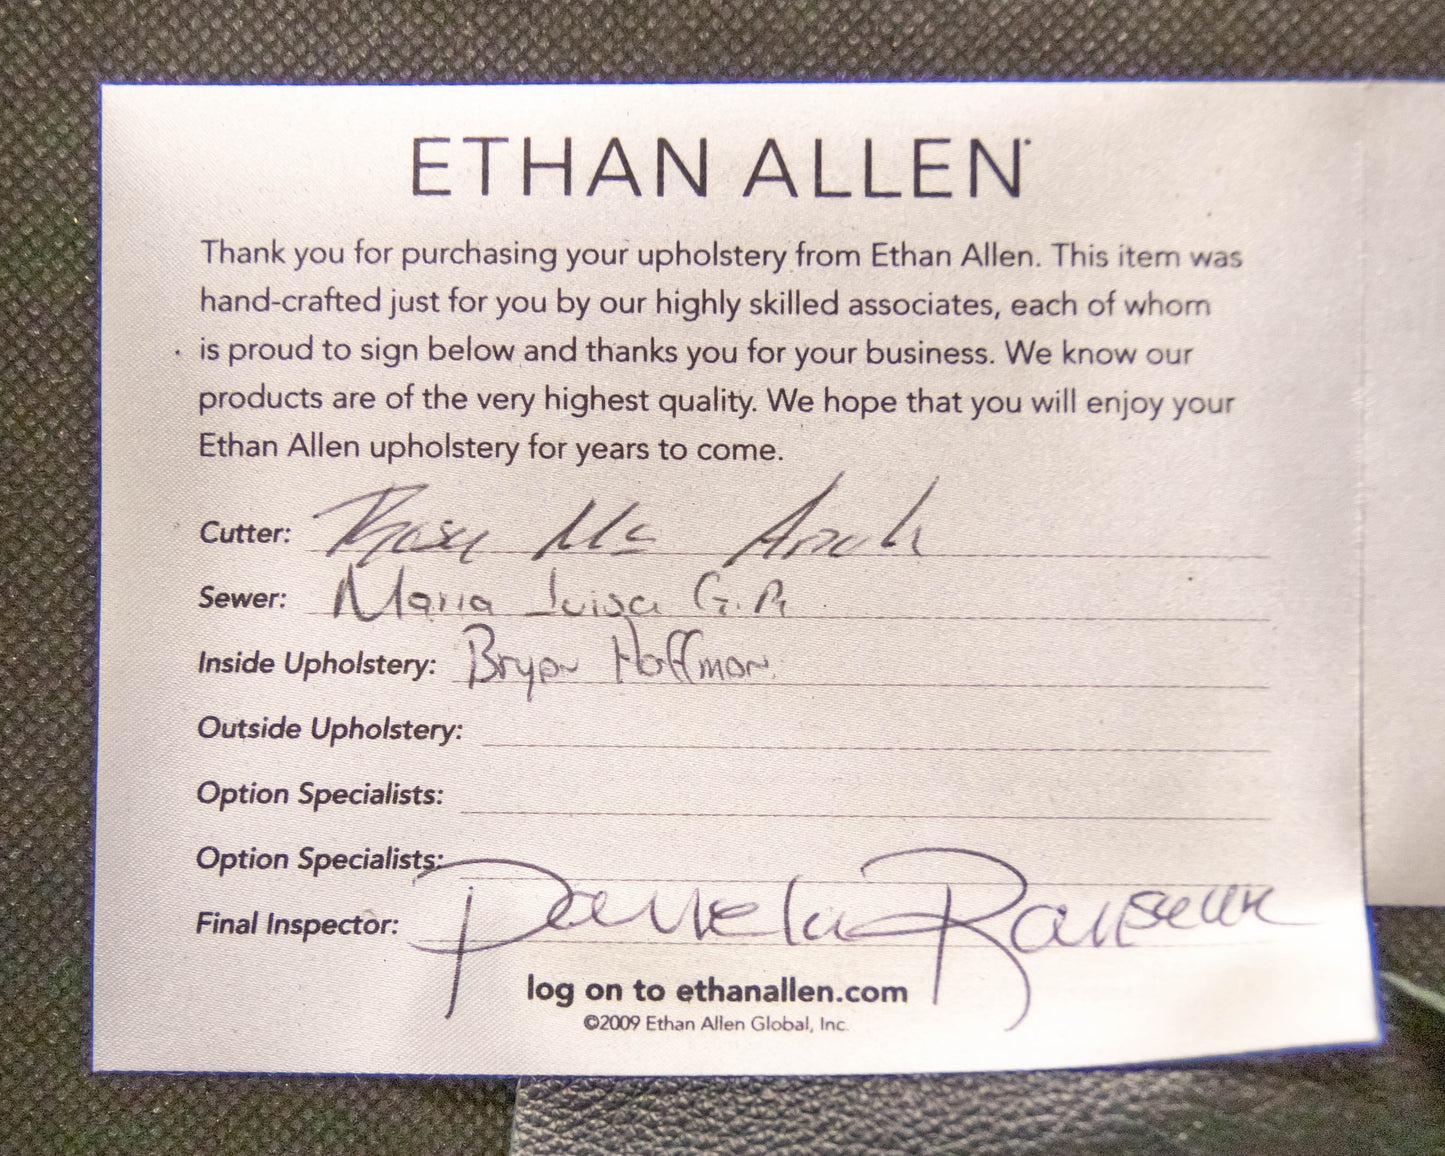 ETHAN ALLEN
Thank you for purchasing your upholstery from Ethan Allen. This item was
hand-crafted just for you by our highly skilled associates, each of whom
is proud to sign below and thanks you for your business. We know our
products are of the very highest quality. We hope that you will enjoy your
Ethan Allen upholstery for years to come.
Cutter:
Sewer: Maria Luisa G.
Inside Upholstery: Bryan Hoffman
Outside Upholstery:
Option Specialists:
Option Specialists:
Final Inspector: Pamela
log on to ethanallen.com
©2009 Ethan Allen Global, Inc.